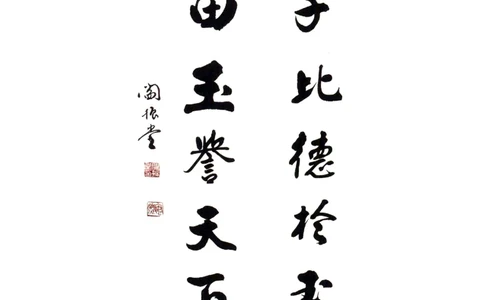 子比德於玉
田玉譽天下
閻振堂